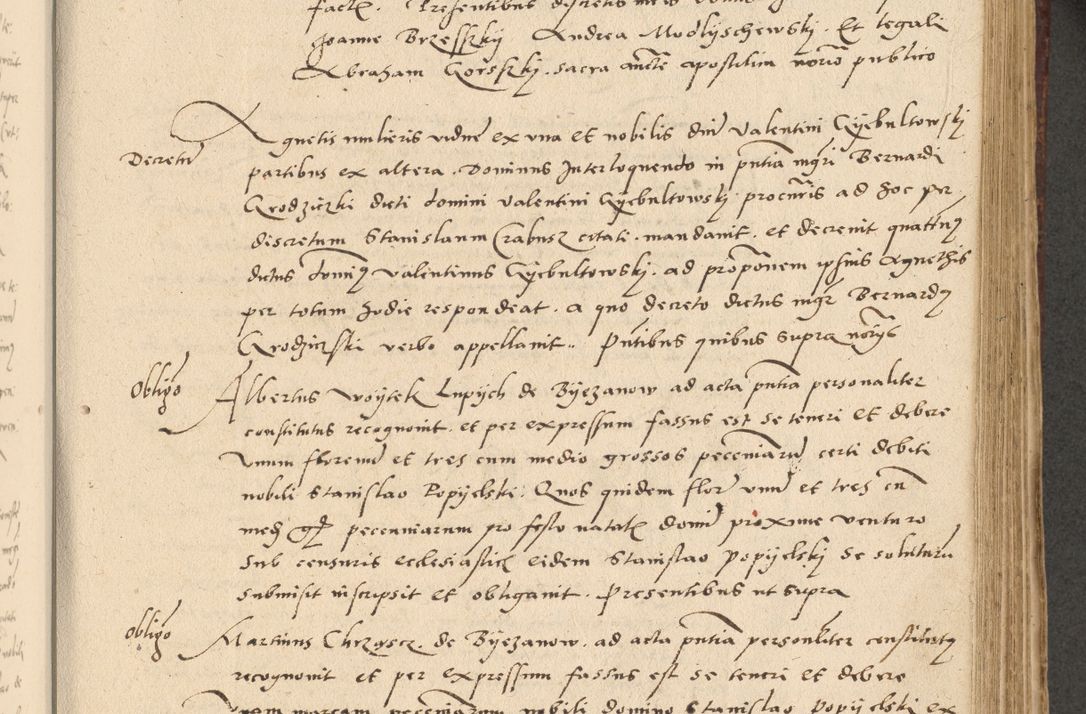 factʒ. Presentibus discretis
Joanne Brzesskÿ Andrea Modlyschewskj. Et legali
Abraham Gorsskj. sacra aucte apostolica norio publico
Decretu
Agnetis mulieris vidue ex vna et nobilis dni Valentini Gÿebultowskj
partibus ex altera. Dominus Interloquendo in pntia mgri Bernardi
Grodziczki dicti domini Valentini Gÿebultowskj procuris ad hoc per
discretum Stanislaum Crabusz citati. mandauit. et decreuit quattnꝰ
dictus domiꝰ Valentinus Gÿebultowskj. ad propoonem ipsius Agnethis
per totum hodie respondeat. a quo decreto dictus mgr Bernardꝰ
Grodziczki verbo appellauit.. Pntibus quibus supra
Obligo
Albertus Woÿtek Lupÿch de Bÿezanow ad acta pntia personaliter
constitutus recognouit. et per expressum fassus est se teneri et debere
vnum florenu et tres cum medio grossos pecuniaru certi debiti
nobili Stanislao Popÿelski. Quos quidem flor vnu et tres cu
med gr pecuniarum pro festo natalʒ domi proxime venturo
sub censuris ecclesiasticʒ eidem Stanislao Popÿelskj se soluturu
submisit inscripsit et obligauit. Presentibus ut supra
Obligo
Martinus Chrząscz. de Bÿezanow. ad acta pntia personliter constitutꝰ
recognouit et per expressum fassus est se teneri et debere
marcam pecuniarum nobili domino Stanislao Popÿelskj ex